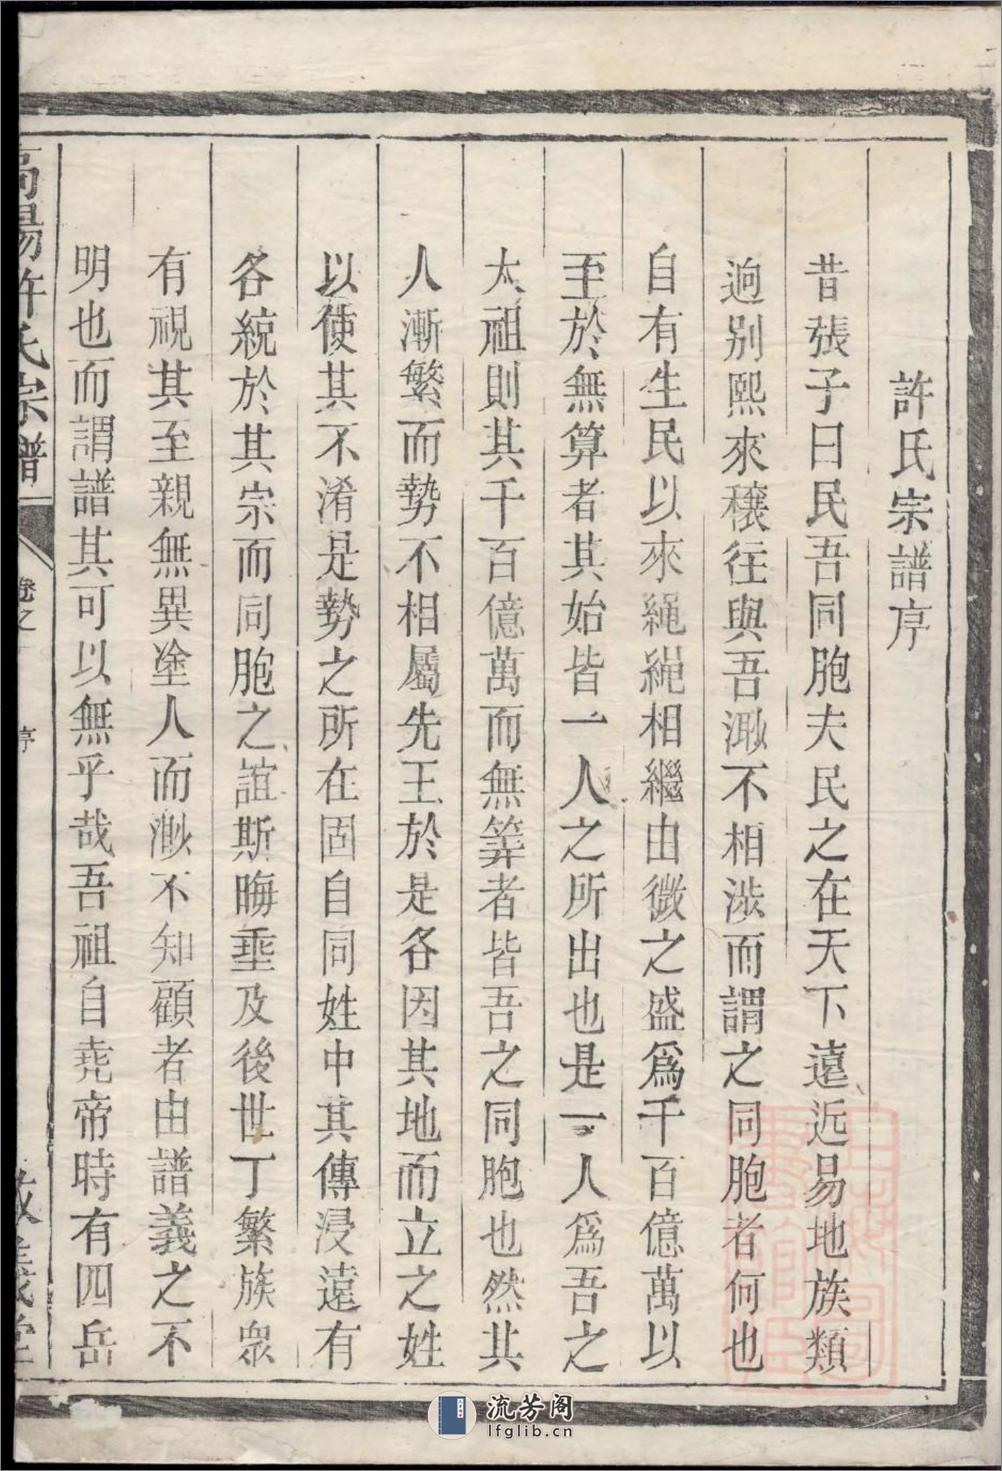 許氏宗譜序
昔張子曰民吾同胞夫民之在天下遠近易地族類
逈別熙來穰往與吾漠不相涉而謂之同胞者何也
自有生民以來繩繩相繼由微之盛爲千百億萬以
至於無算者其始皆一人之所出也是一人爲吾之
太祖則其千百億萬而無筭者皆吾之同胞也然其
人漸繁而勢不相屬先王於是各因其地而立之姓
以使其不淆是勢之所在固自同姓中其傳浸遠有
各統於其宗而同胞之誼斯晦垂及後世丁繁族眾
有視其至親無異塗人而漠不知顧者由譜義之不
明也而謂譜其可以無乎哉吾祖自堯帝時有四岳
高陽許氏宗譜
卷之
序
流芳阁
lfglib.cn